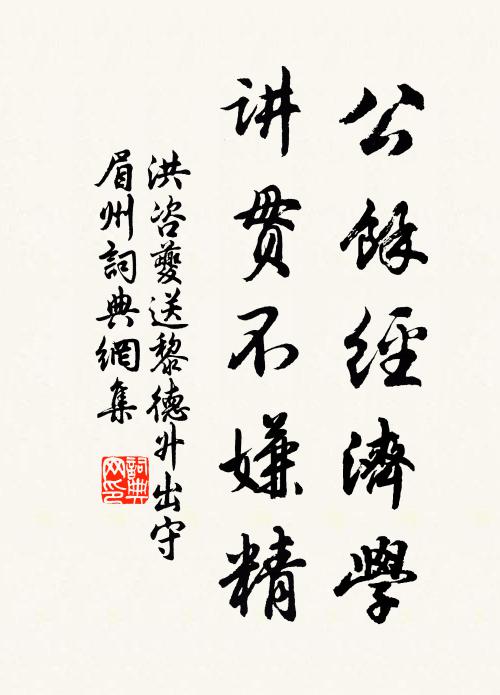 公餘經濟學
讲贯不嫌精
洪咨夔送黎德升出守
眉州詞典網集
詞典
网印